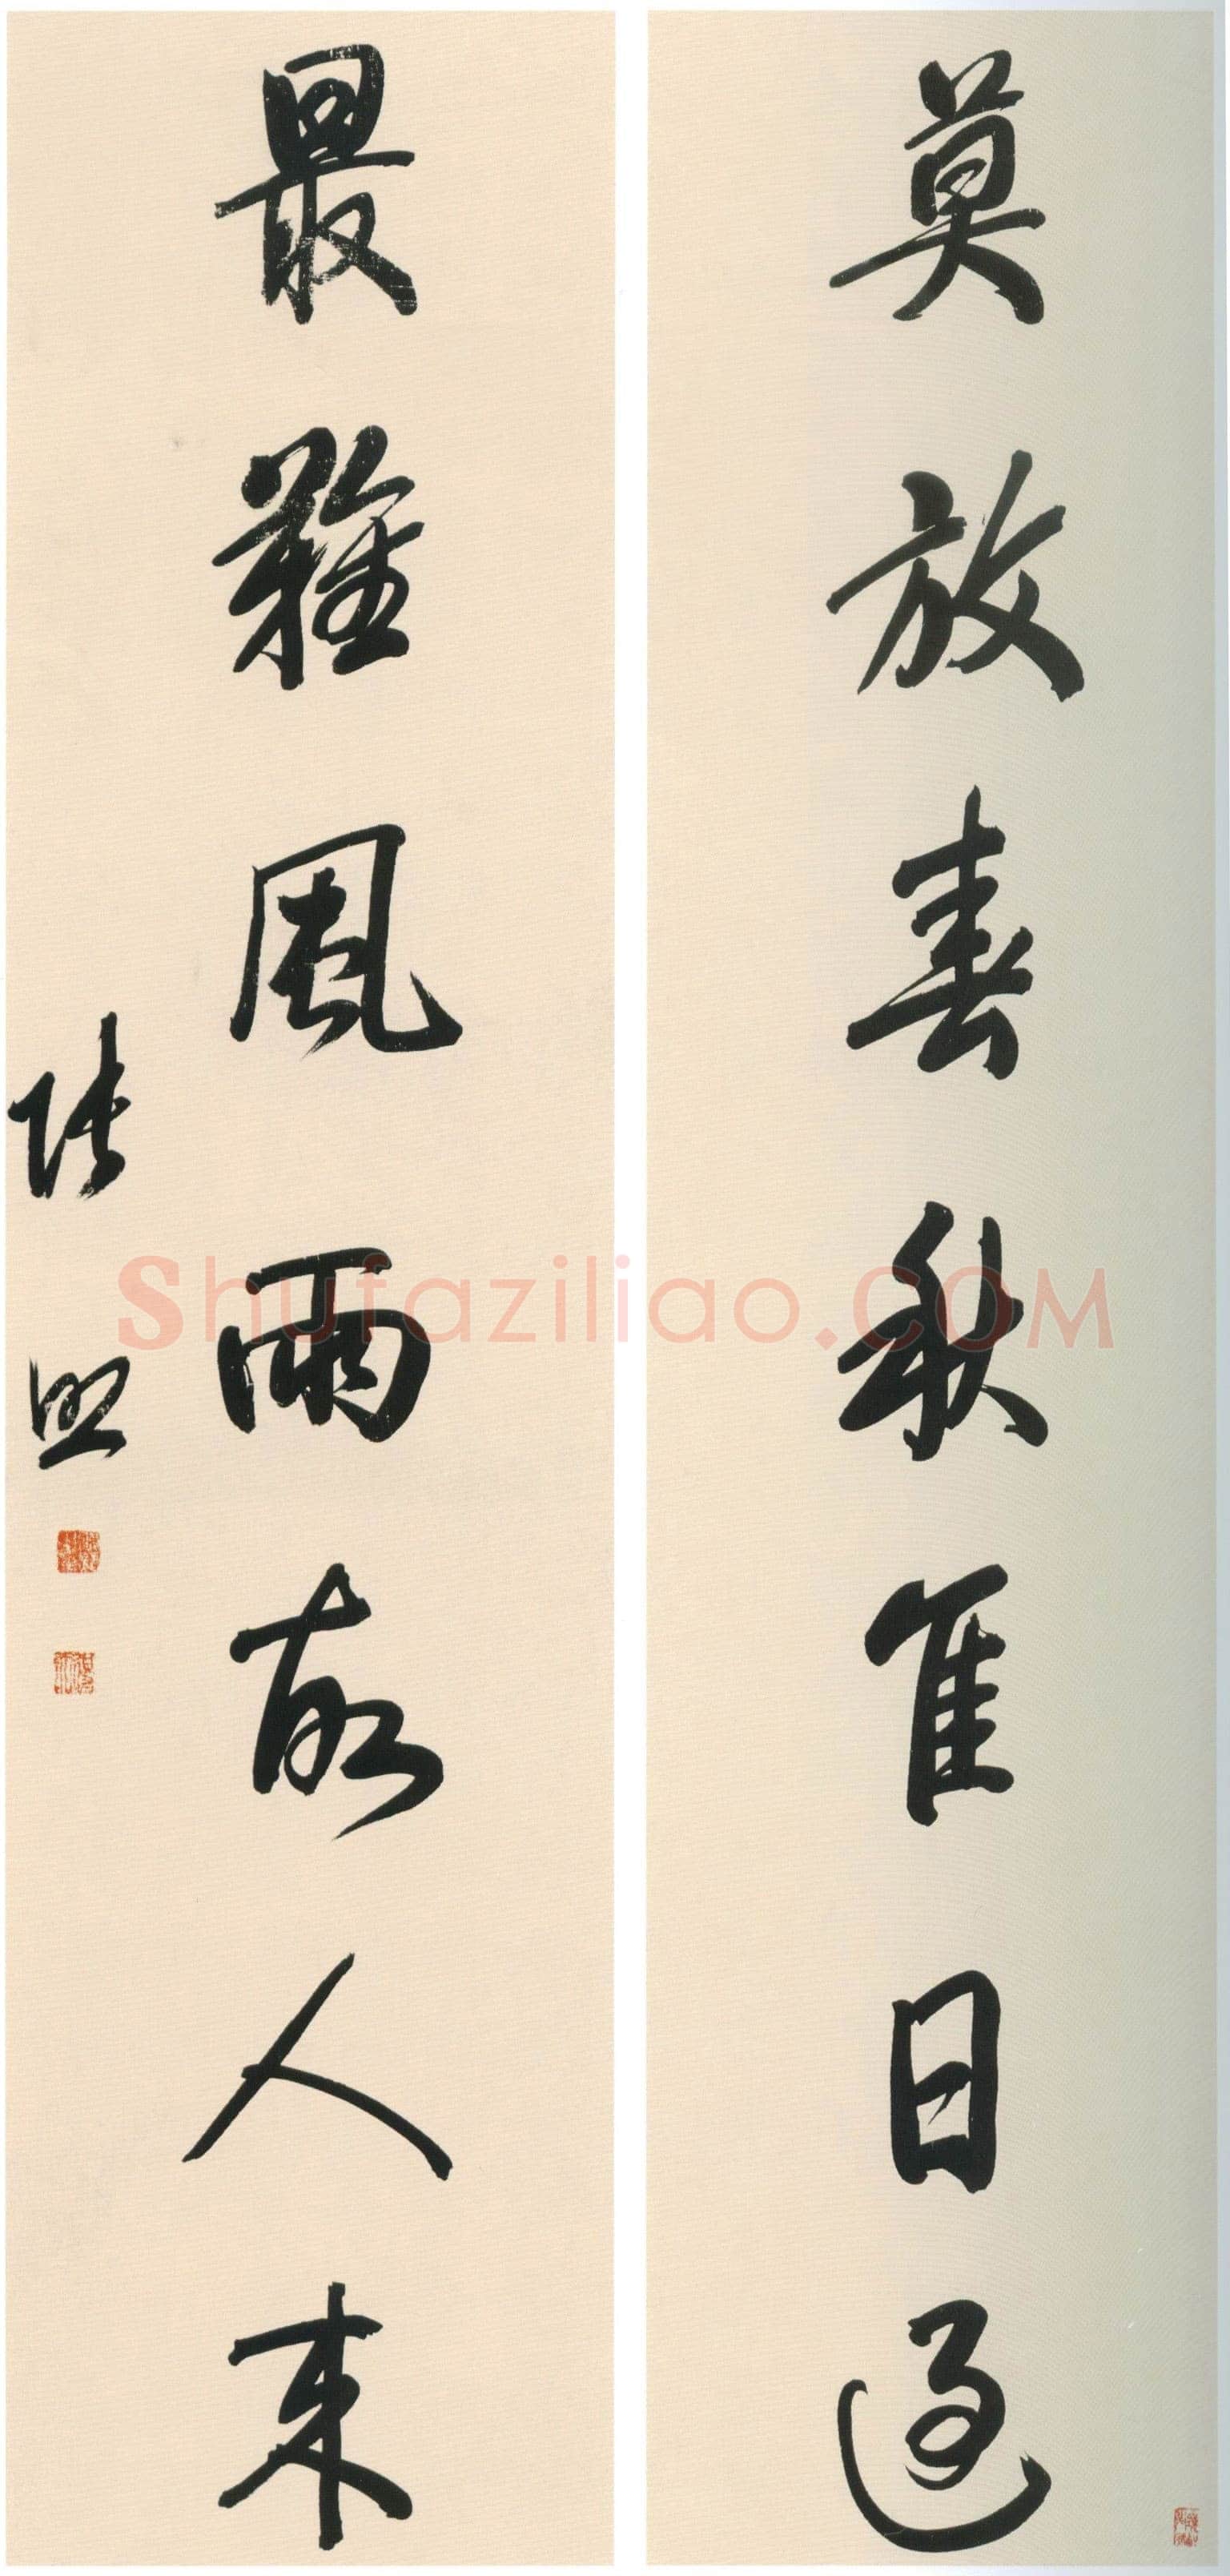 莫放春秋佳日過
最難風雨故人來
張照
Shufaziliao.COM